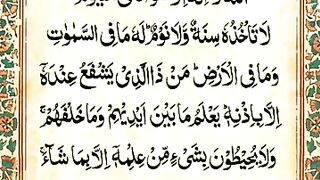 لَا تَاۡخُذُهٗ سِنَةٌ وَّلَا نَوۡمٌ ؕ لَهٗ مَا فِى السَّمٰوٰتِ
وَمَا فِى الۡاَرۡضِ ؕ مَنۡ ذَا الَّذِىۡ يَشۡفَعُ عِنۡدَهٗۤ
اِلَّا بِاِذۡنِهٖ ؕ يَعۡلَمُ مَا بَيۡنَ اَيۡدِيۡهِمۡ وَمَا خَلۡفَهُمۡ ۚ
وَلَا يُحِيۡطُوۡنَ بِشَىۡءٍ مِّنۡ عِلۡمِهٖۤ اِلَّا بِمَا شَآءَ ۚ